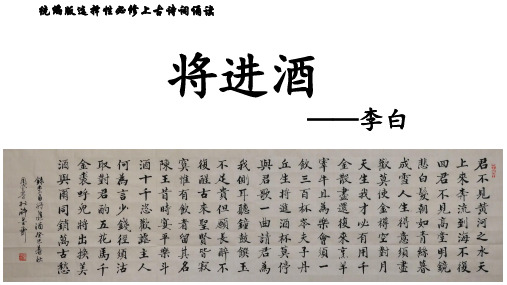 统编版选择性必修上古诗词诵读
将进酒
——李白
君不見黃河之水天
上來奔流到海不復
回君不見高堂明鏡
悲白髮朝如青絲暮
成雪人生得意須盡
歡莫使金樽空對月
天生我才必有用千
金散盡還復來烹羊
宰牛且為樂會須一
飲三百杯岑夫子丹
丘生將進酒杯莫停
與君歌一曲請君為
我側耳聽鐘鼓饌玉
不足貴但願長醉不
復醒古來聖賢皆寂
寞惟有飲者留其名
陳王昔時宴平樂斗
酒十千恣歡謔主人
何為言少錢徑須沽
取對君酌五花馬千
金裘呼兒將出換美
酒與爾同銷萬古愁
錄李白將進酒